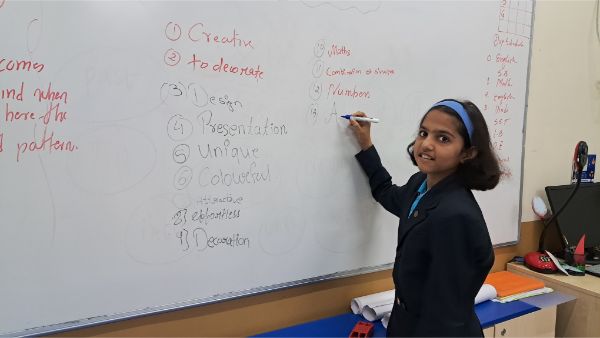 comes
ind when
here the
d pattern.
① Creative
② to decorate
(3) Design
④ Presentation
⑤ Unique
⑥ Colourful
Attractive
8) effortless
9) Decoration
⑩ Maths
Combination of
Numbers
A
English
Math
English
Hindi
SST